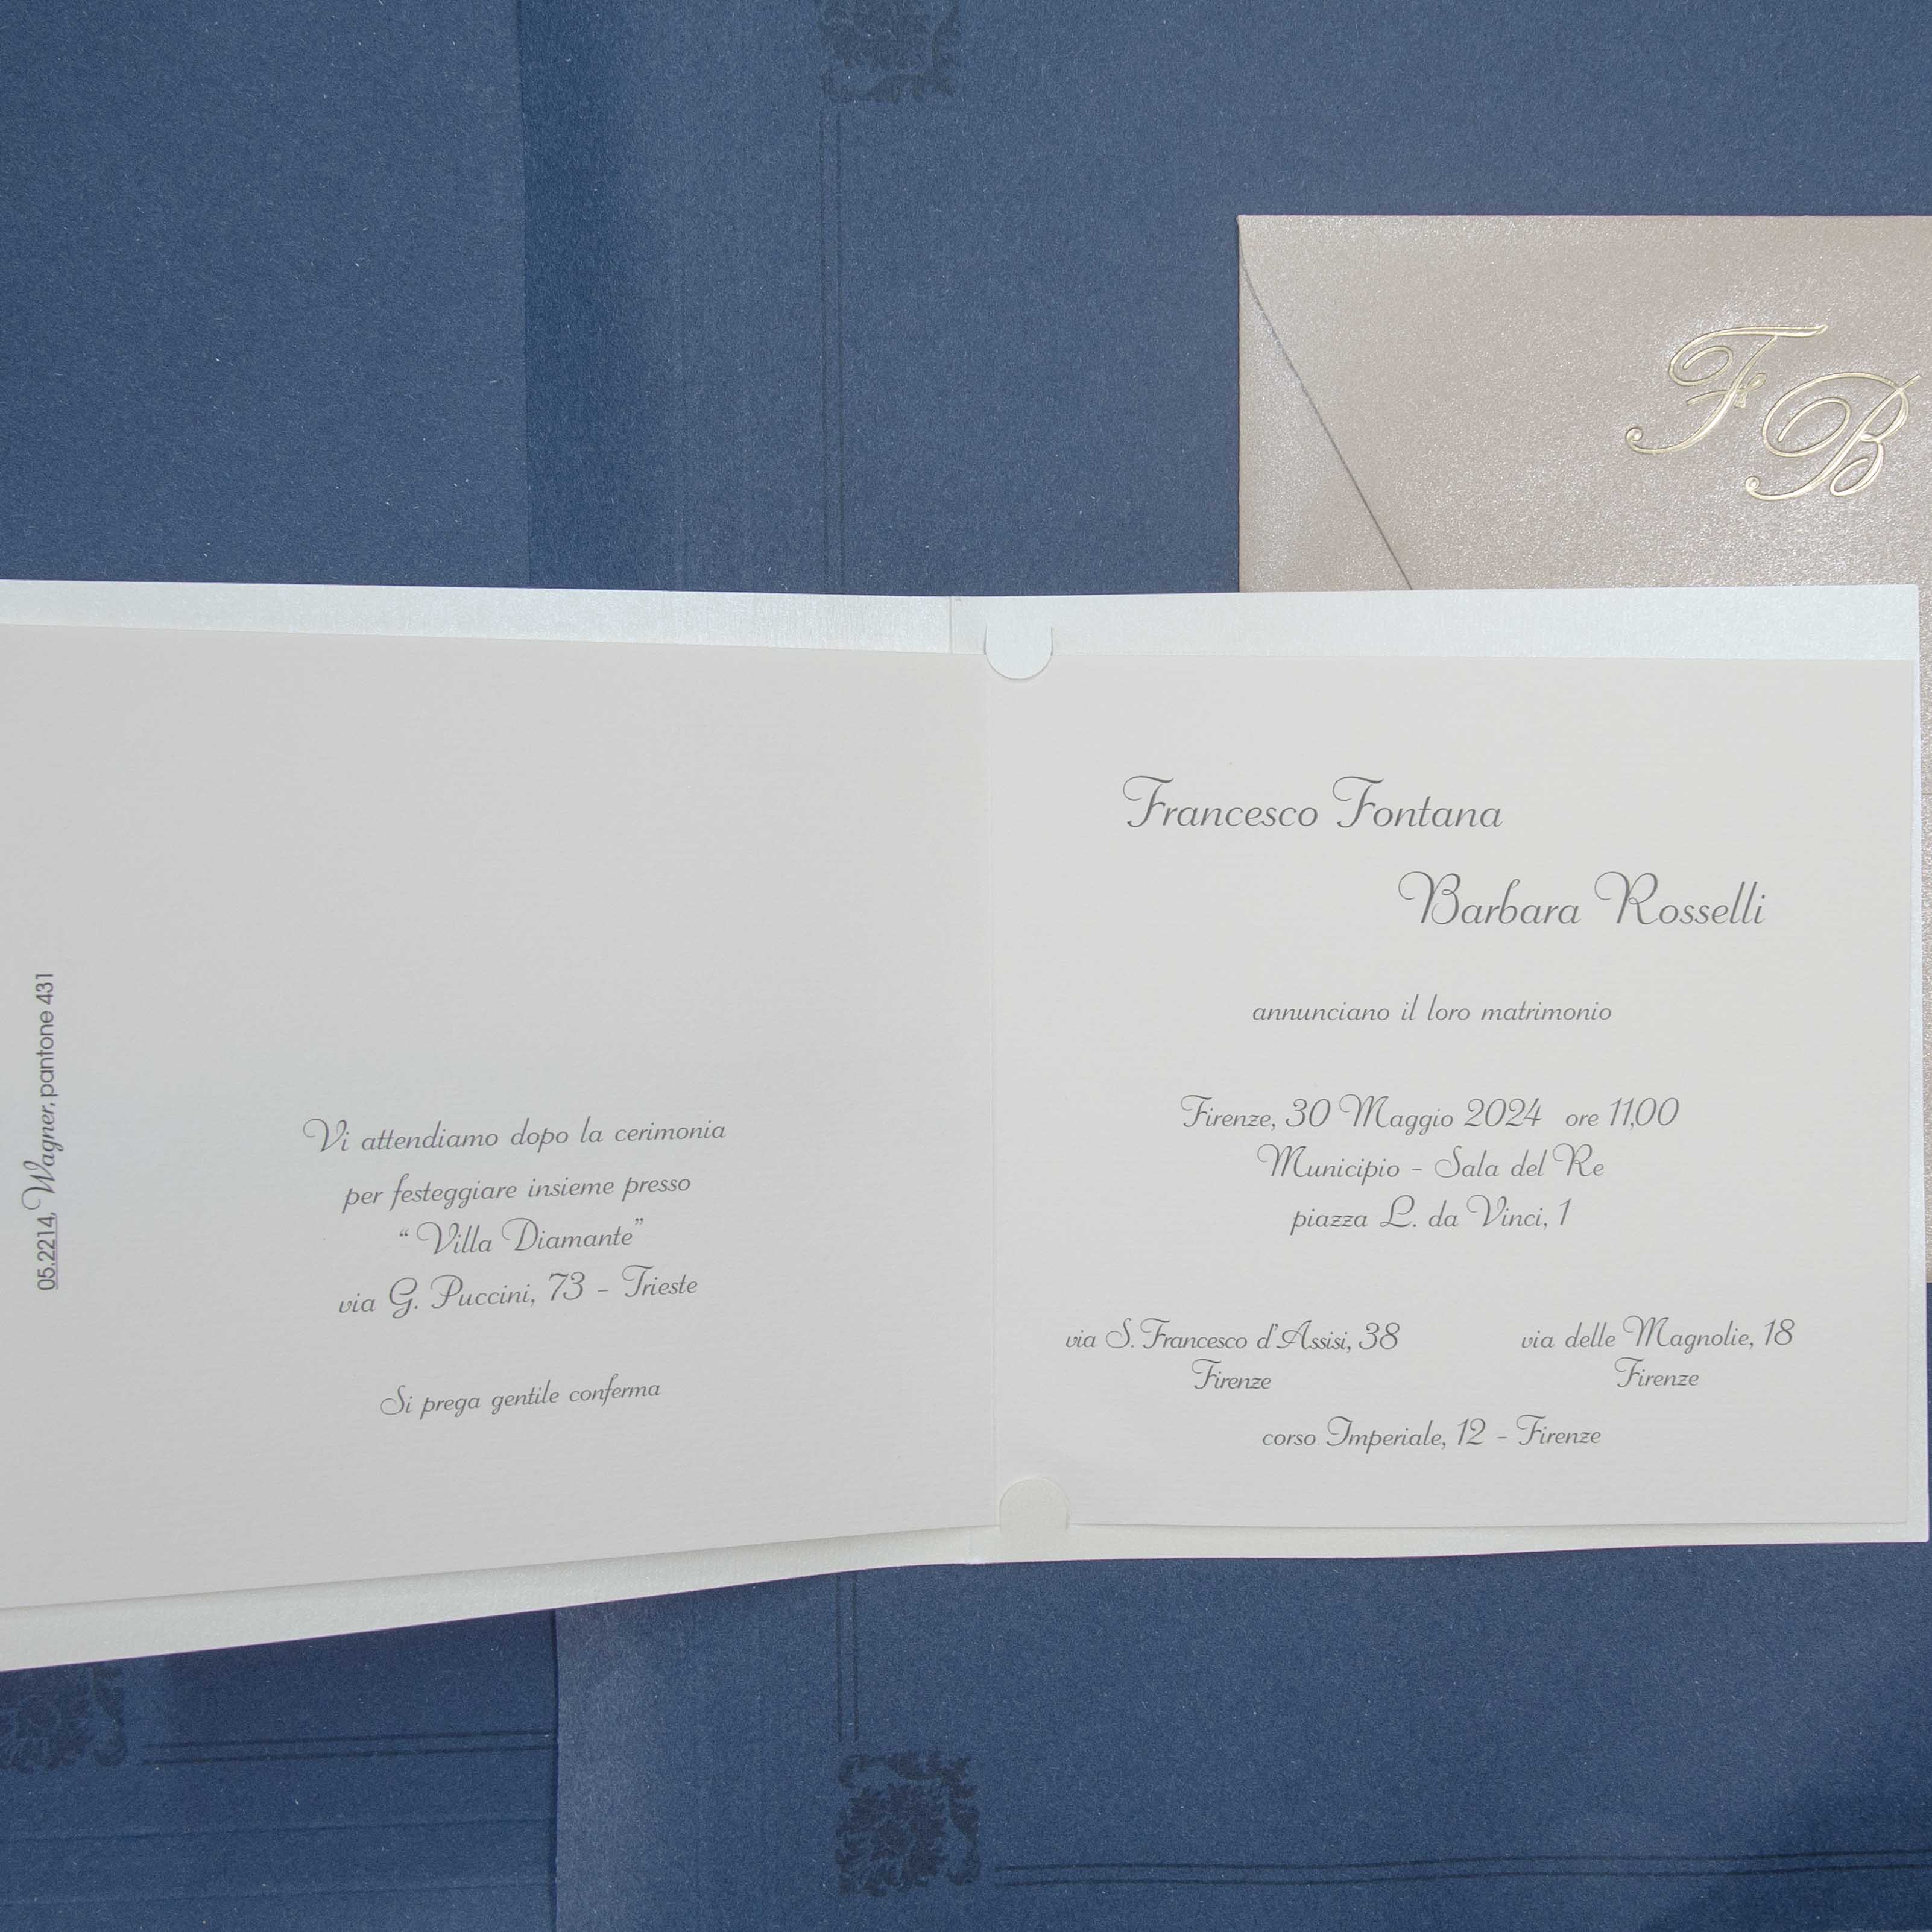 F B
05.2214, Wagner, pantone 431
Vi attendiamo dopo la cerimonia
per festeggiare insieme presso
“ Villa Diamante”
via G. Puccini, 73 - Trieste
Si prega gentile conferma
Francesco Fontana
Barbara Rosselli
annunciano il loro matrimonio
Firenze, 30 Maggio 2024 ore 11,00
Municipio - Sala del Re
piazza L. da Vinci, 1
via S. Francesco d'Assisi, 38
Firenze
via delle Magnolie, 18
Firenze
corso Imperiale, 12 - Firenze